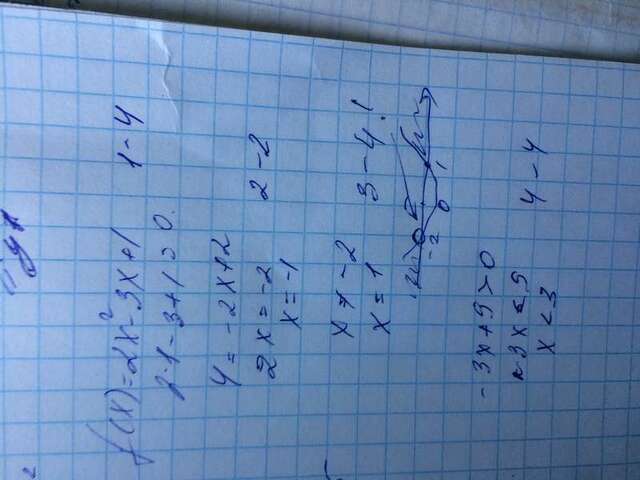 f(x)=2x²-3x+1 1-4
2·1-3+1=0.
4=-2x+2
2x=-2 2-2
x=-1
x≠-2
x=1 3-4!
-2 0 1
-3x+9>0
-3x<9
x<3 4-4